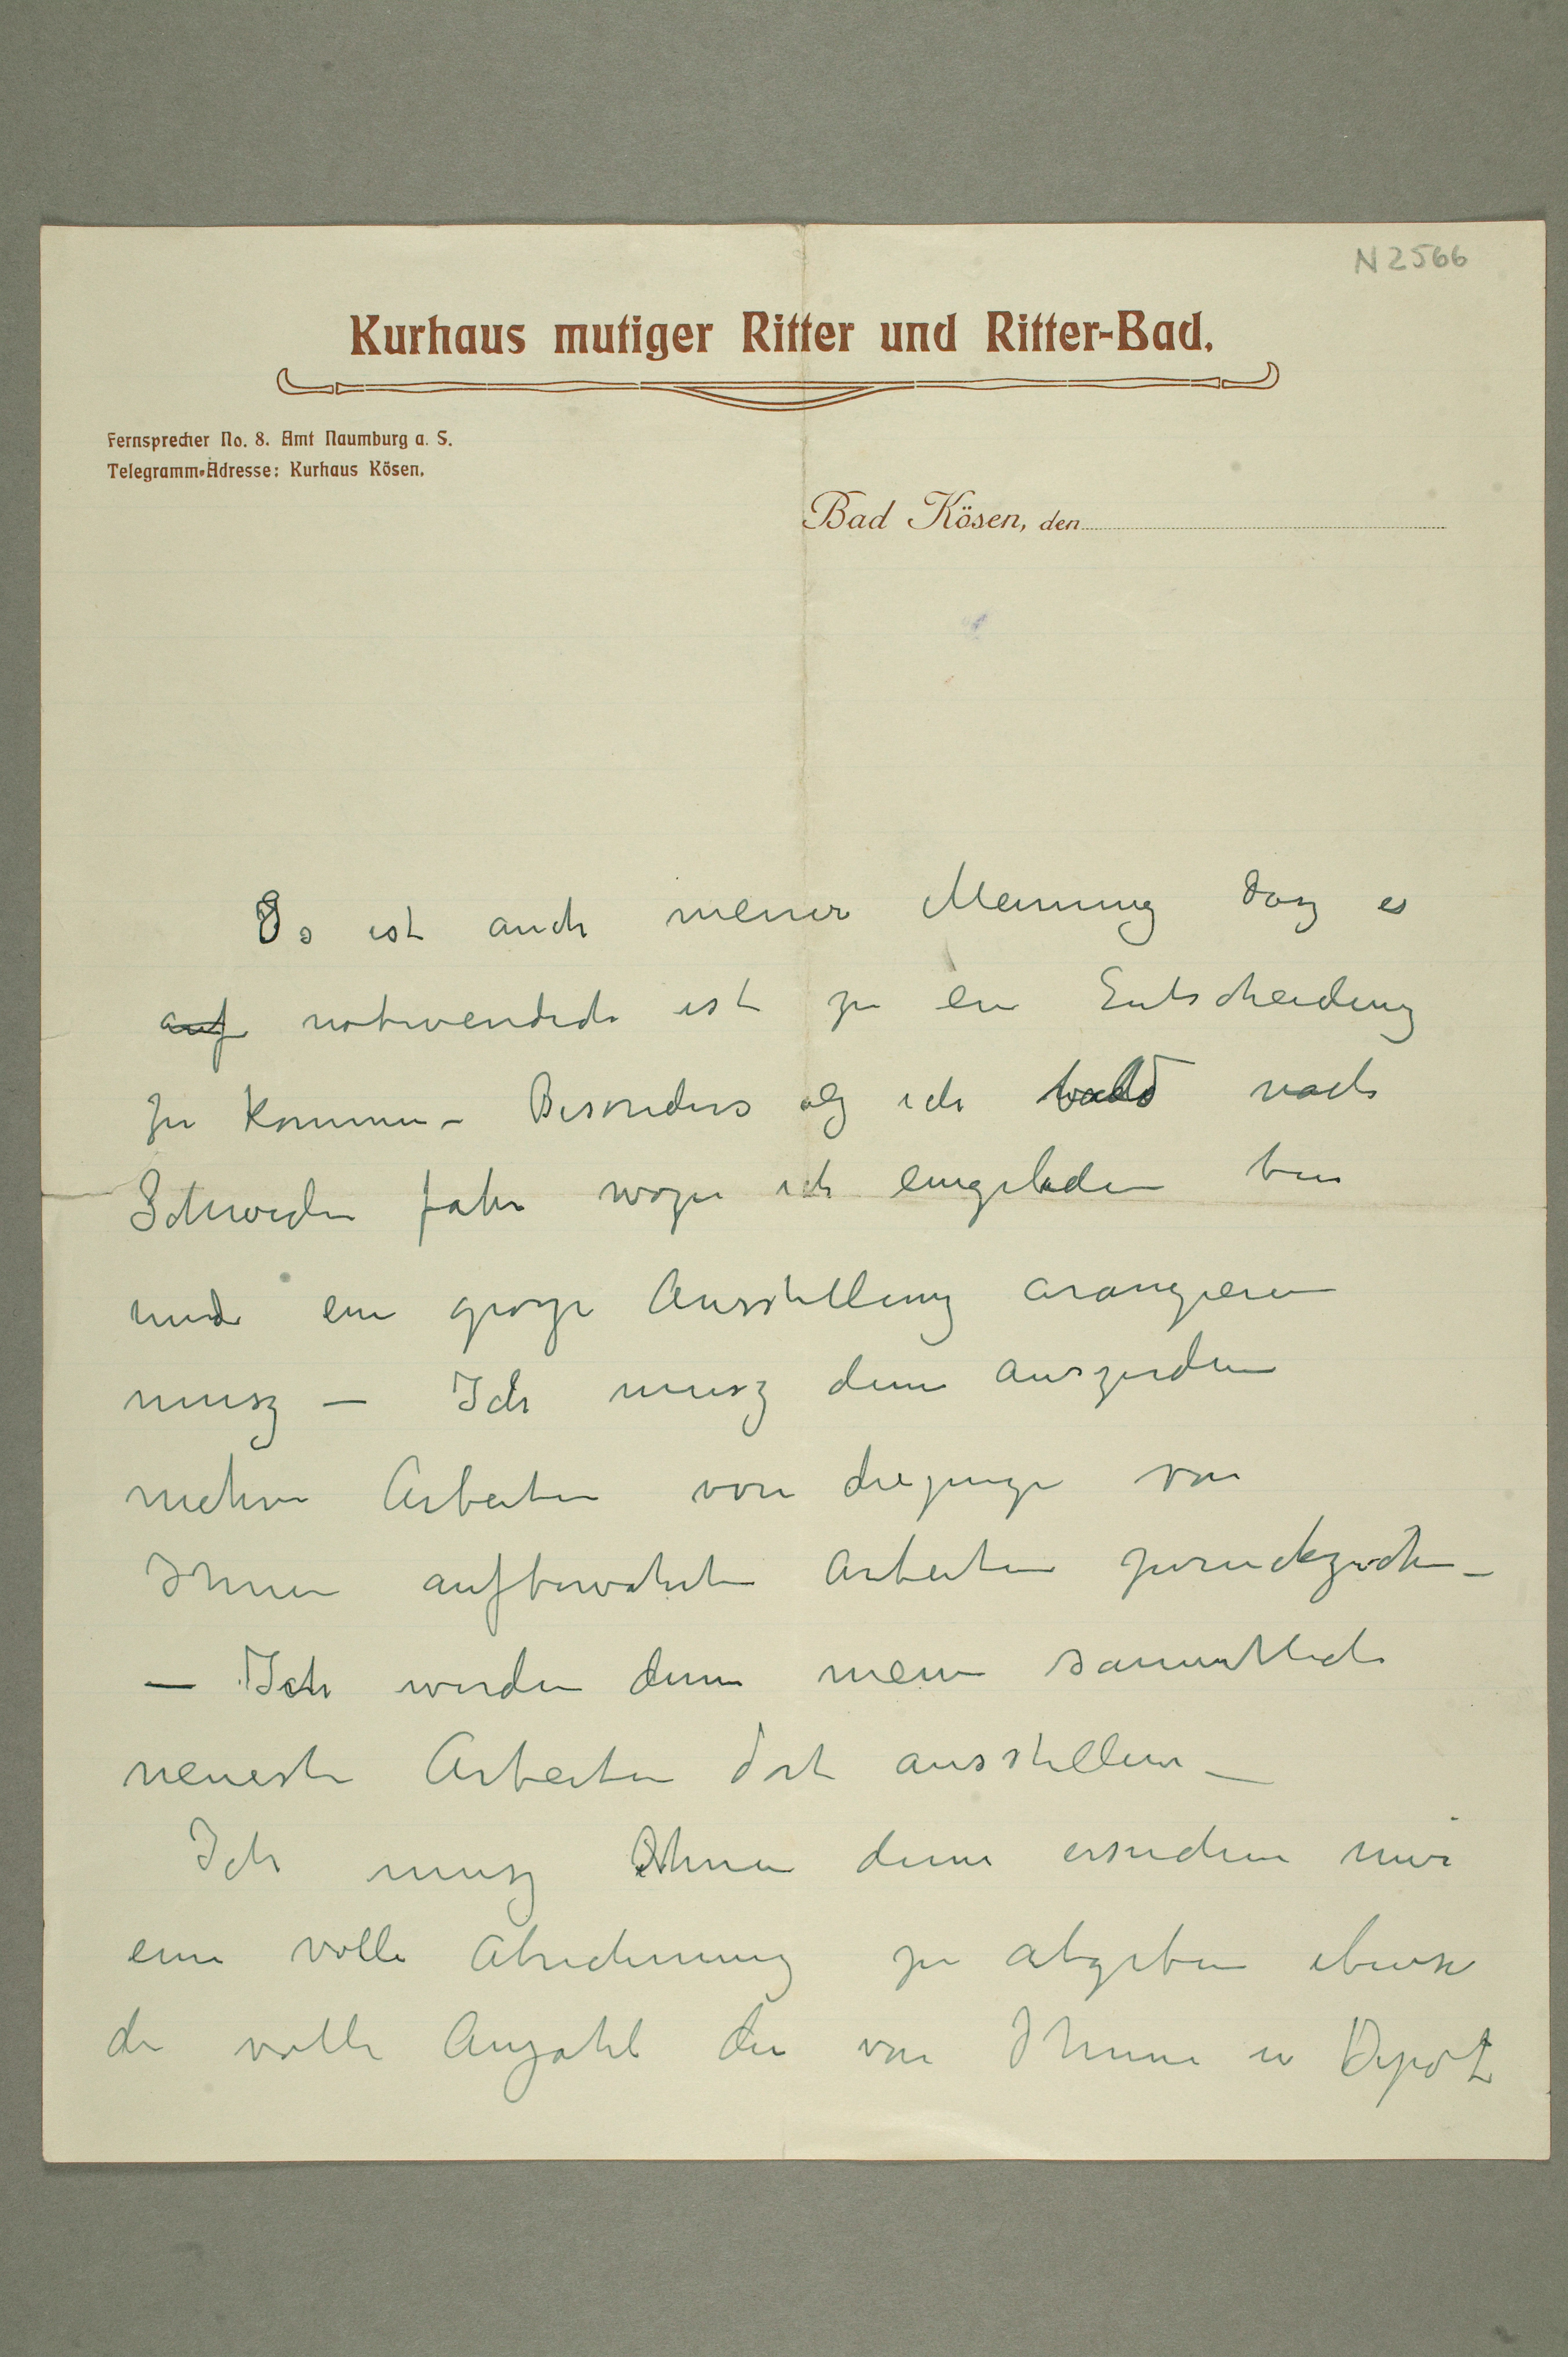 N 2566
Kurhaus mutiger Ritter und Ritter-Bad.
Fernsprecher No. 8. Amt Naumburg a. S.
Telegramm-Adresse: Kurhaus Kösen.
Bad Kösen, den
Es ist auch meiner Meinung dasz es
auf notwendich ist zu ein Entscheidung
zu kommen – Besonders als ich bald nach
Schweden fahre wozu ich eingeladen bin
und ein grosze Ausstellung arangieren
musz – Ich musz denn auszerdem
mehre Arbeiten von diejenige von
Ihnen aufbewahrten Arbeiten zuruckziehen –
– Ich werden denn meine sammtliche
neueste Arbeiten dort ausstellen –
Ich musz Ihnen denn ersuchen mir
eine volle Abrechnung zu abgeben ebenso
die volle Anzahl der von Ihnen in Depot